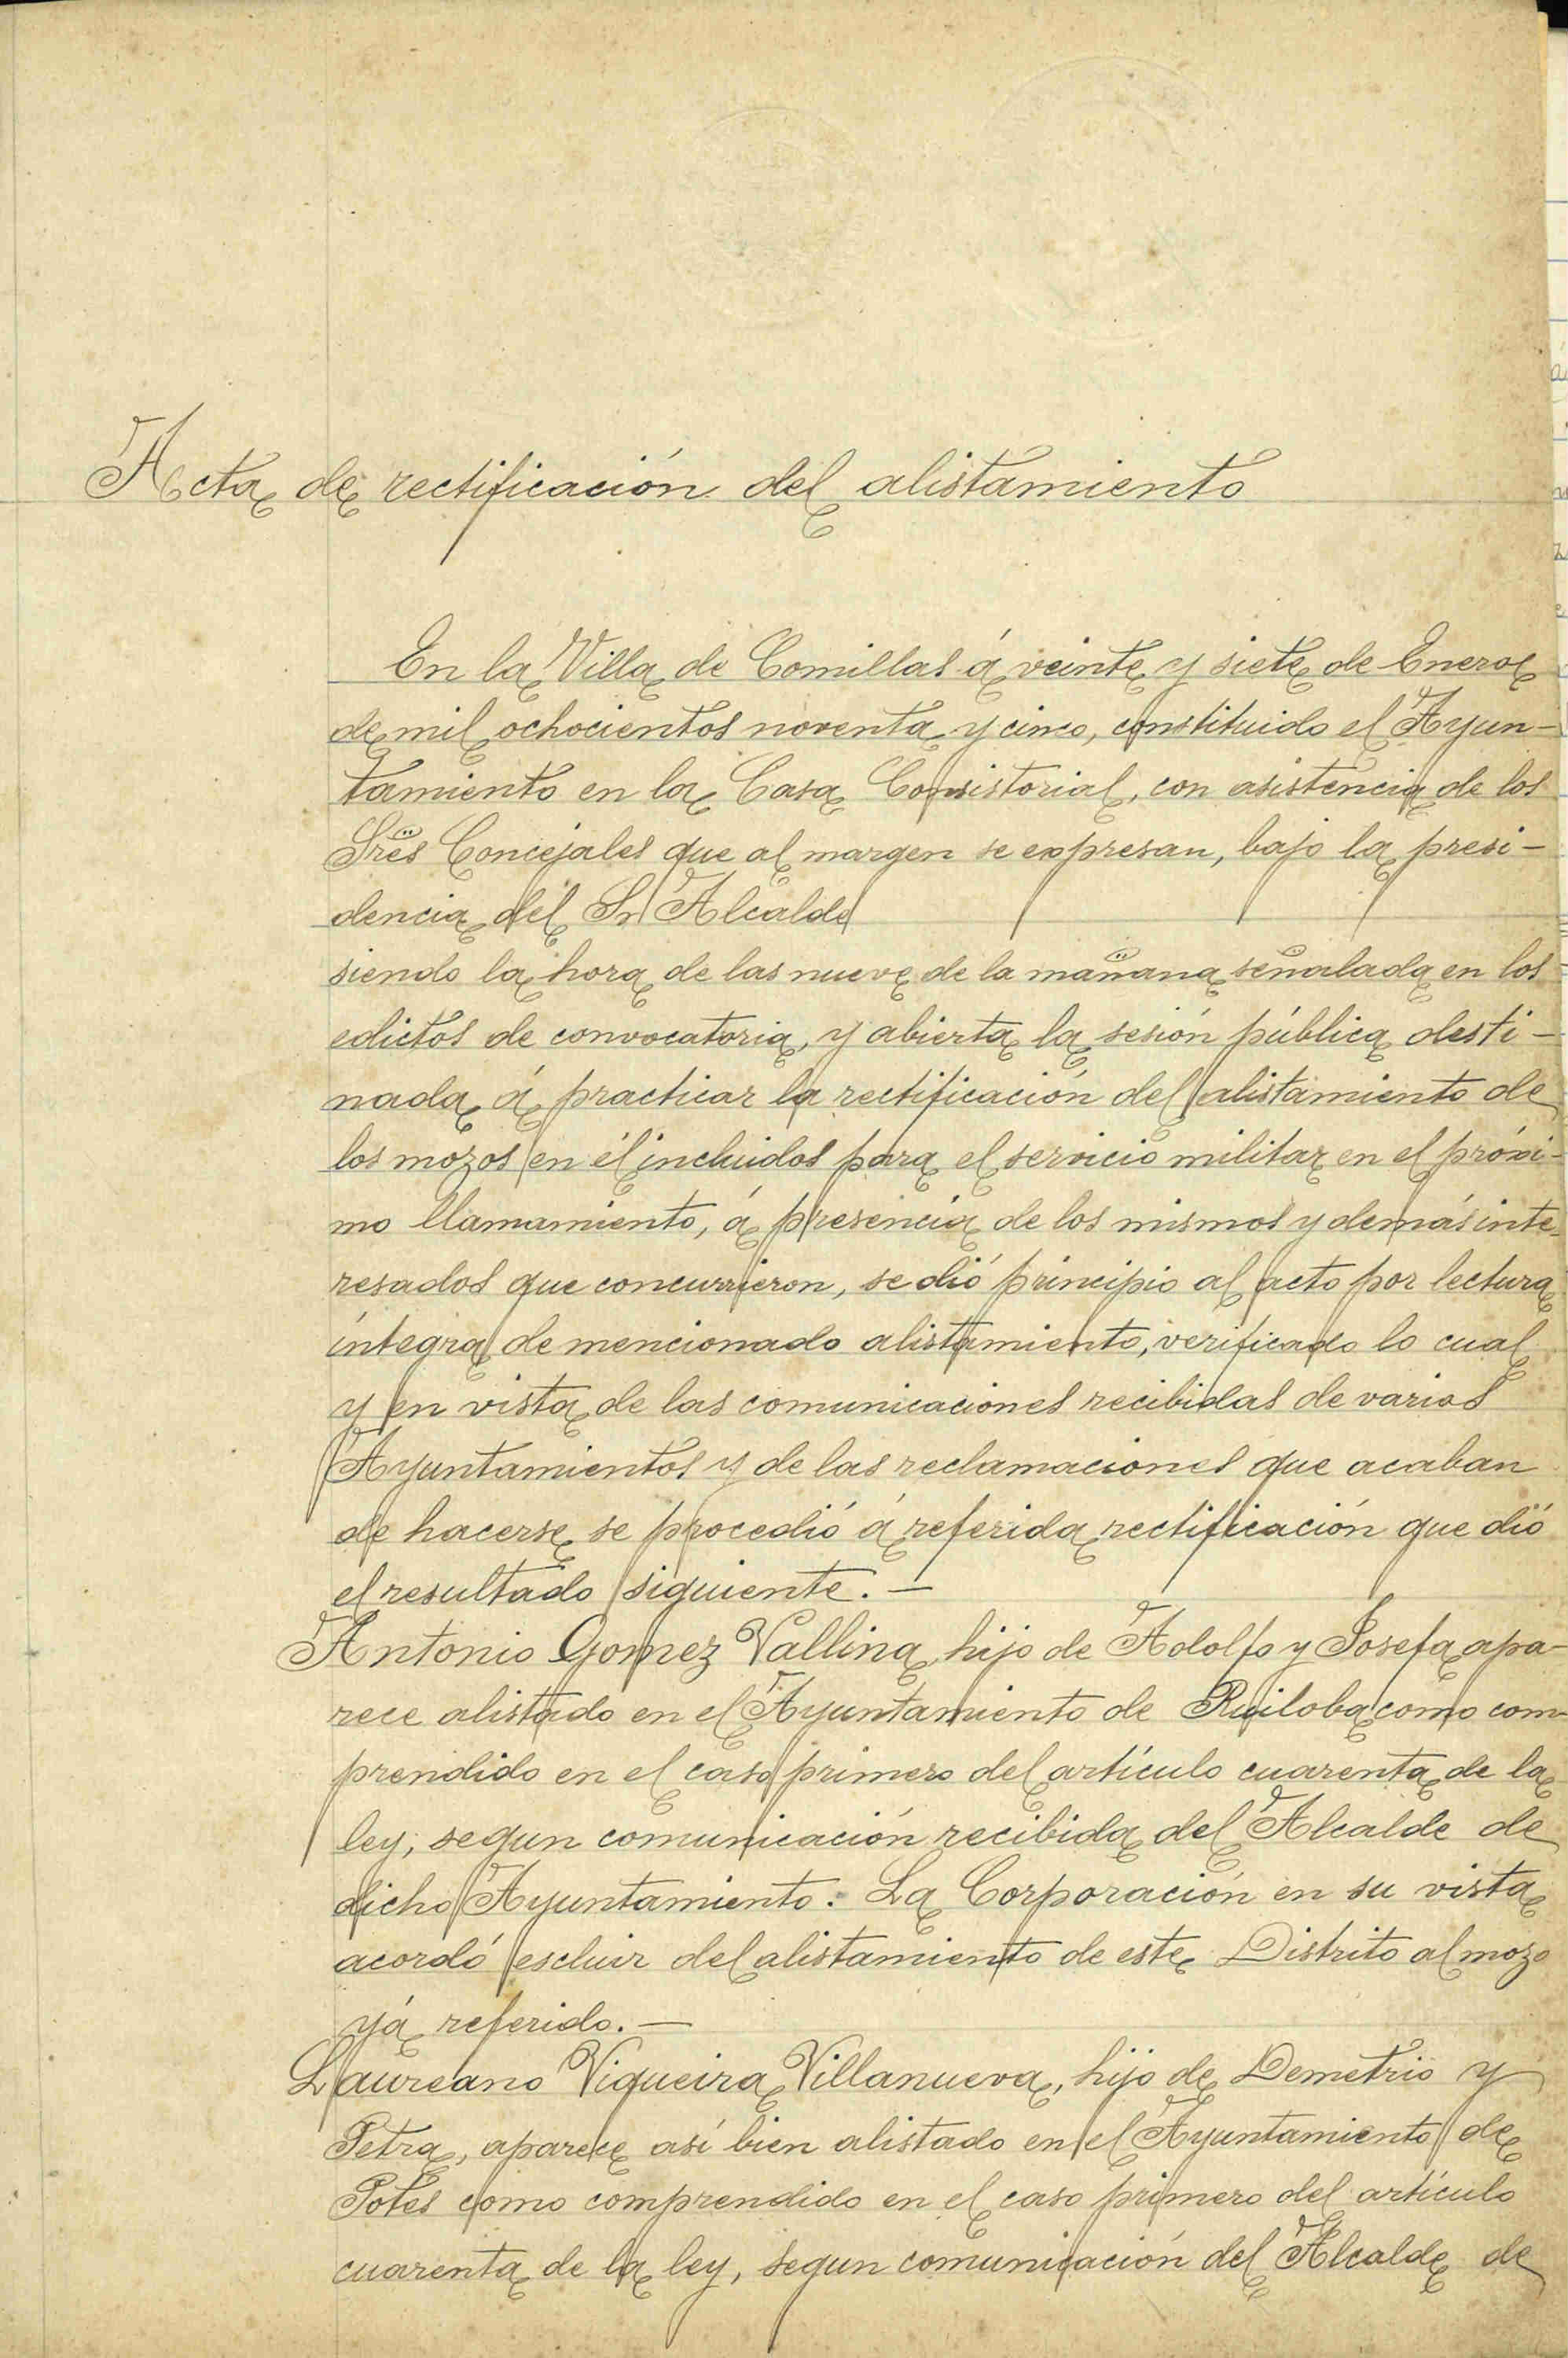 Acta de rectificación del alistamiento
En la Villa de Comillas á veinte y siete de Enero
de mil ochocientos noventa y cinco, constituido el Ayun-
tamiento en la Casa Consistorial, con asistencia de los
Sres Concejales que al margen se expresan, bajo la presi-
dencia del Sr Alcalde
siendo la hora de las nueve de la mañana señalada en los
edictos de convocatoria, y abierta la sesión pública desti-
nada á practicar la rectificación del alistamiento de
los mozos en él incluidos para el servicio militar en el próxi-
mo llamamiento, á presencia de los mismos y demás inte-
resados que concurrieron, se dió principio al acto por lectura
íntegra de mencionado alistamiento, verificado lo cual
y en vista de las comunicaciones recibidas de varios
Ayuntamientos y de las reclamaciones que acaban
de hacerse se procedió á referida rectificación que dió
el resultado siguiente. —
Antonio Gomez Vallina, hijo de Adolfo y Josefa, apa-
rece alistado en el Ayuntamiento de Ruiloba como com-
prendido en el caso primero del artículo cuarenta de la
ley, segun comunicación recibida del Alcalde de
dicho Ayuntamiento: La Corporación en su vista
acordó escluir del alistamiento de este Distrito al mozo
yá referido. —
Laureano Viqueira Villanueva, hijo de Demetrio y
Petra, aparece así bien alistado en el Ayuntamiento de
Potes como comprendido en el caso primero del artículo
cuarenta de la ley, segun comunicación del Alcalde de